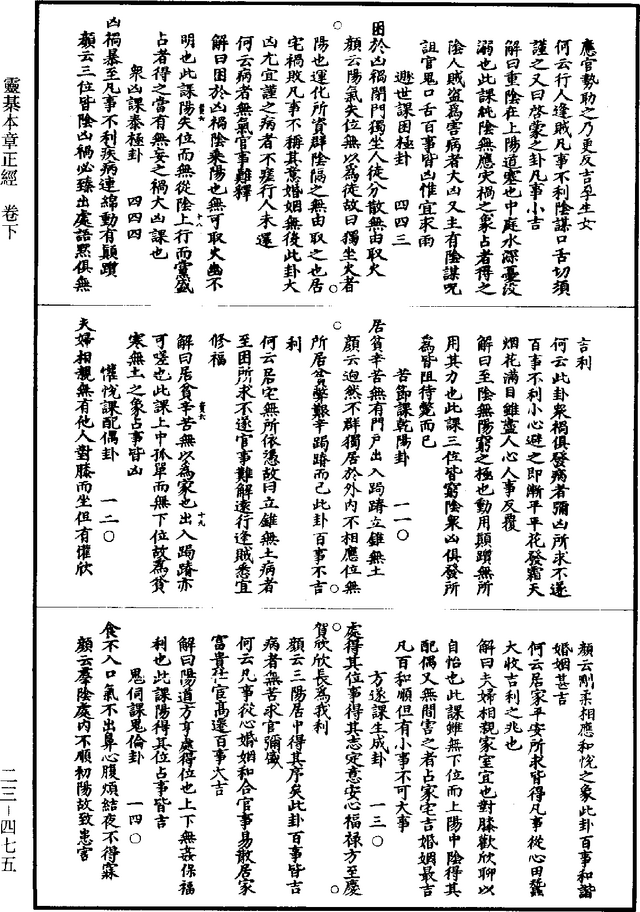 應官勢助之乃更反吉孕生女
何云行人逢賊凡事不利陰謀口舌切須
謹之又曰啓蒙之卦凡事小吉
解曰重陰在上陽道塞也中庭水深憂沒
溺也此課純陰無應灾禍之象占者得之
陰人賊盜爲害病者大凶又主有陰謀呪
詛官鬼口舌百事皆凶惟宜求雨
避世課困極卦　四四三
困於凶禍閉門獨坐人徒分散無由取火
顔云陽氣失位無以爲徒故曰獨坐火者
陽也運化所資群陰隔之無由取之也居
宅禍敗凡事不稱其意婚姻無後此卦大
凶尤宜謹之病者不瘥行人未還
何云病者無氣官事難釋
解曰困於凶禍陰乘陽也無可取火幽不
明也此課陽失位而無從陰上行而黨盛
占者得之當有無妄之禍大凶課也
衆凶課泰極卦　四四四
凶禍暴至凡事不利疾病連綿動有顛躓
顔云三位皆陰凶禍必臻出處語默俱無
吉利
何云此卦衆禍俱發病者彌凶所求不遂
百事不利小心避之即漸平平花發霜天
烟花滿目雖盡人心人事反覆
解曰至陰無陽窮之極也動用顛躓無所
用其力也此課三位皆窮陰衆凶俱發所
爲皆阻待斃而已
苦節課乾陽卦　一一〇
居貧辛苦無有門戶出入跼蹐立錐無土
顔云逈然不群獨居於外内不相應位無
所居貧弊艱辛跼蹐而已此卦百事不吉
利
何云居宅無所依憑故曰立錐無土病者
至困所求不遂官事難解遠行逢賊悉宜
修福
解曰居貧辛苦無以爲家也出入跼蹐亦
可嗟也此課上中孤單而無下位故爲貧
寒無土之象占事皆凶
懽悅課配偶卦　一二〇
夫婦相親無有他人對膝而坐但有懽欣
顔云剛柔相應和悅之象此卦百事和諧
婚姻甚吉
何云居家平安所求皆得凡事從心田蠶
大收吉利之兆也
解曰夫婦相親家室宜也對膝歡欣聊以
自怡也此課雖無下位而上陽中陰得其
配偶又無間害之者占家宅吉婚姻最吉
凡百和順但有小事不可大事
方遂課生成卦　一三〇
處得其位事得其志定意安心福祿方至慶
賀欣欣長爲我利
顔云三陽居中得其序矣此卦百事皆吉
病者無苦求官彌盛
何云凡事從心婚姻和合官事易散居家
富貴仕官高遷百事大吉
解曰陽道方亨處得位也上下無姦保福
利也此課陽得其位占事皆吉
鬼伺課鬼倫卦　一四〇
食不入口氣不出鼻心腹煩結夜不得寐
顔云羣陰處内不順初陽故致患害
靈棊本章正經　卷下
二三－四七五